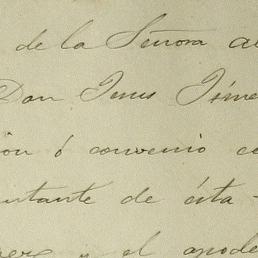 de la Señora a
Don Ines Jime
ión ó convenio c
entante de ésta
y el apode